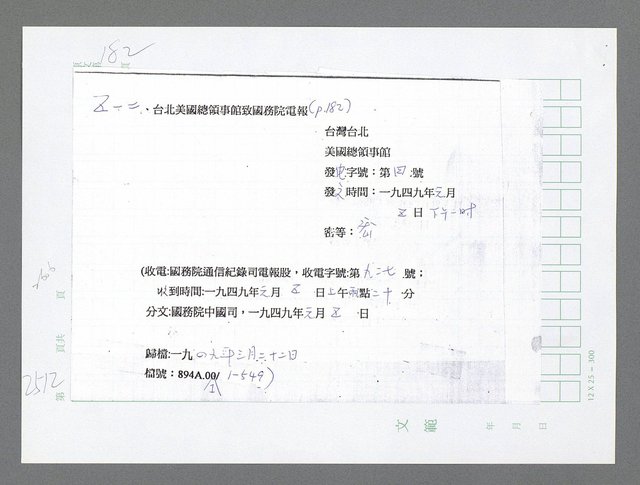 182
頁
五十二、台北美國總領事館致國務院電報(p.182)
台灣台北
美國總領事館
發電字號：第四號
發文時間：一九四九年元月
五日下午一时
密等：密
(收電:國務院通信紀錄司電報股，收電字號:第九二七號；
收到時間:一九四九年元月五日上午兩點二十分
分文:國務院中國司，一九四九年元月五日
歸檔:一九四九年三月二十二日
檔號：894A.00/1-549)
頁
頁共
2512
第
文範
年月日
12 X 25 = 300